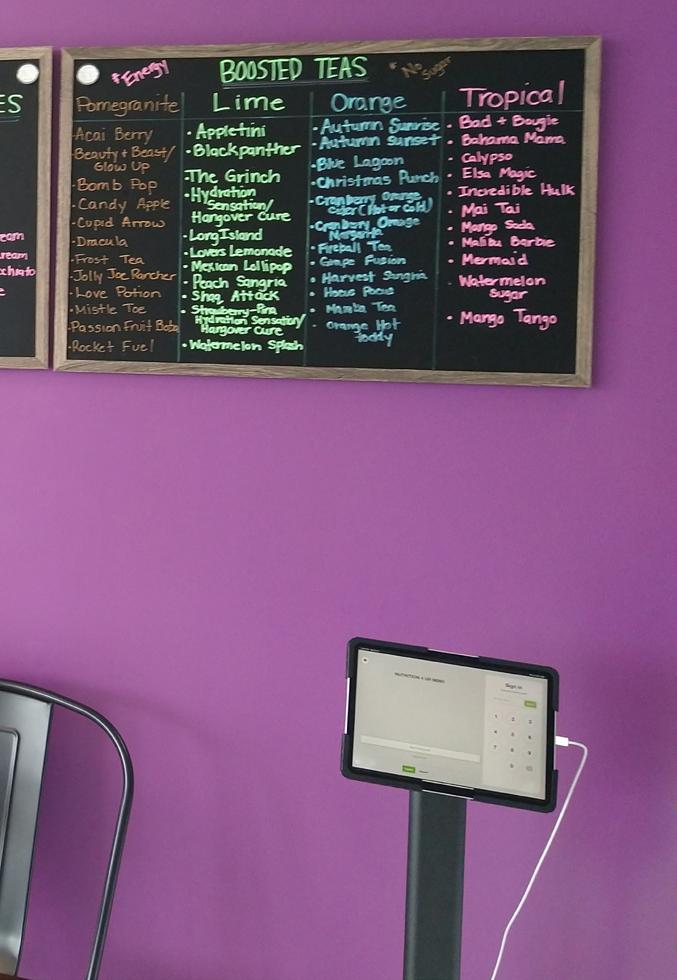 ES
eam
ream
cchiato
e
*Energy
BOOSTED TEAS
*No Sugar
Pomegranite
Acai Berry
Beauty + Beast/
Glow Up
Bomb Pop
Candy Apple
Cupid Arrow
Dracula
Frost Tea
Jolly Joe Rancher
Love Potion
Mistle Toe
Passion Fruit Boba
Rocket Fuel
Lime
Appletini
Blackpanther
The Grinch
Hydration
Sensation/
Hangover Cure
Long Island
Lovers Lemonade
Mexican Lollipop
Peach Sangria
Shaq Attack
Strawberry-Pina
Hydration Sensation/
Hangover Cure
Watermelon Splash
Orange
Autumn Sunrise
Autumn Sunset
Blue Lagoon
Christmas Punch
Cranberry Orange
Cider (Hot or Cold)
Cranberry Orange
Margarita
Fireball Tea
Grape Fusion
Harvest Sangria
Hocus Pocus
Mamba Tea
Orange Hot
Toddy
Tropical
Bad + Bougie
Bahama Mama
Calypso
Elsa Magic
Incredible Hulk
Mai Tai
Mango Soda
Malibu Barbie
Mermaid
Watermelon
Sugar
Mango Tango
Sign in
1 2 3
4 5 6
7 8 9
0